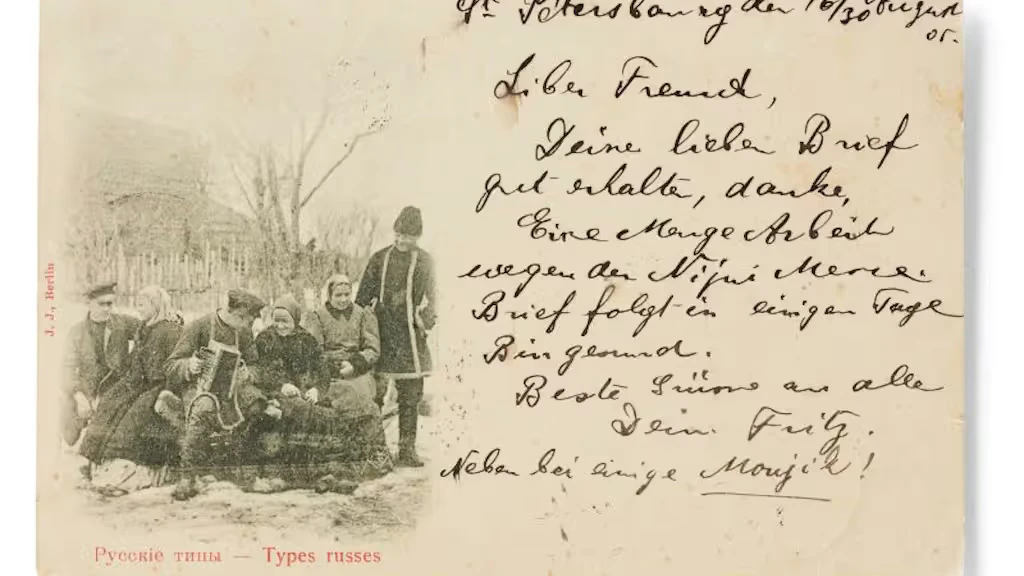 St. Petersbourg den 16/30 August
05.
Liber Freund,
Deine lieben Brief
gut erhalte, danke,
Eine Menge Arbeit
wegen der Nijni Messe.
Brief folgt in einigen Tage
Bin gesund.
Beste Grüsse an alle
Dein Fritz.
Neben bei einige Moujik!
J. J., Berlin
Русскіе типы — Types russes